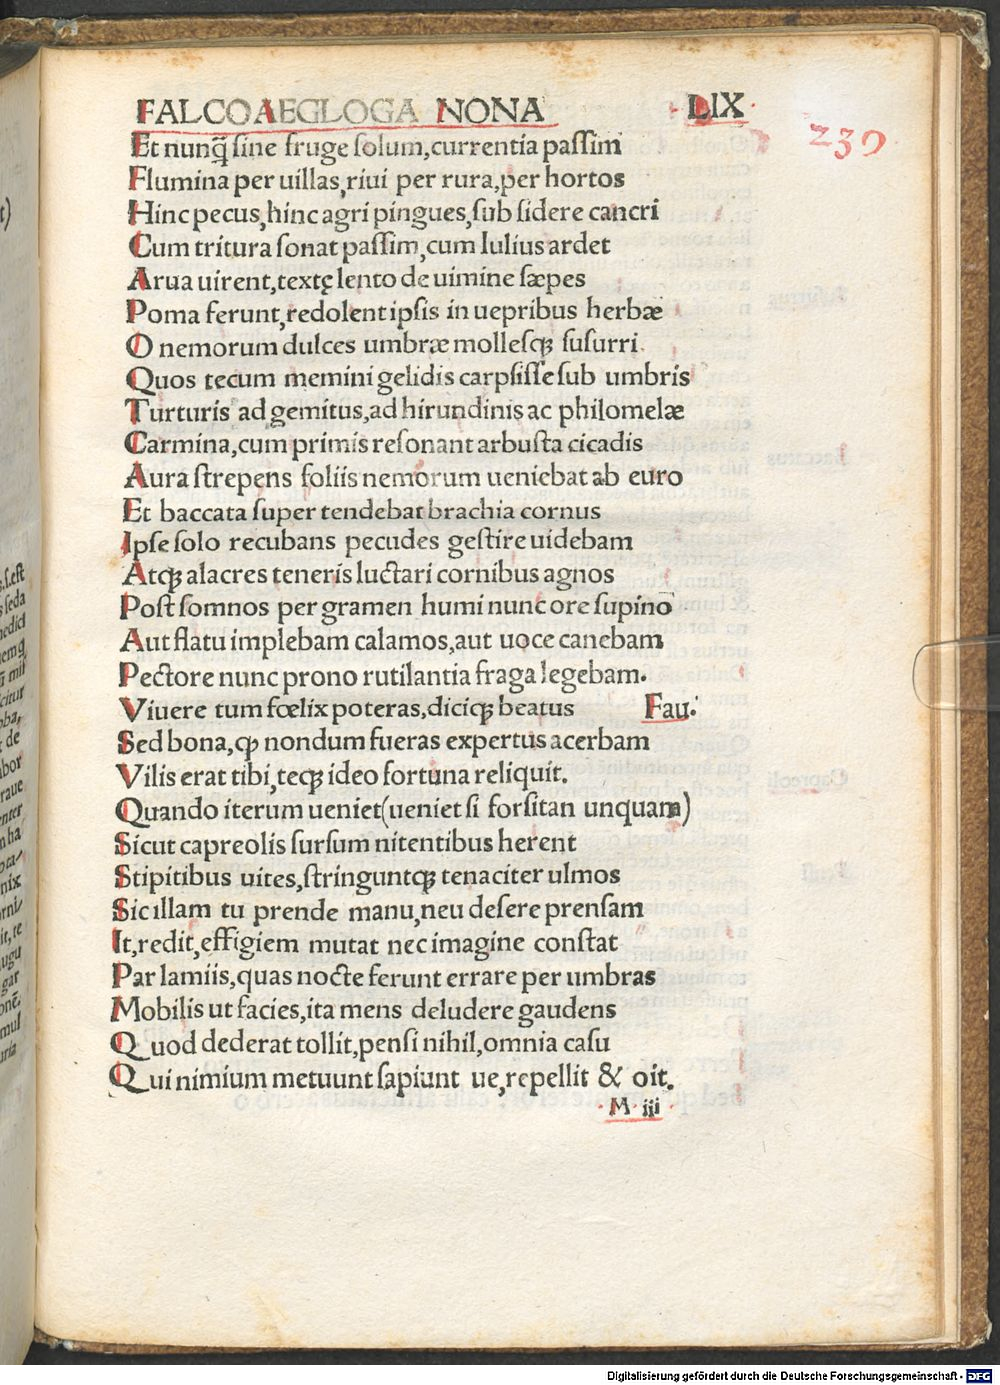 FALCO AEGLOGA NONA LIX
239
Et nunq̃ sine fruge solum, currentia passim
Flumina per uillas, riui per rura, per hortos
Hinc pecus, hinc agri pingues, sub sidere cancri
Cum tritura sonat passim, cum Iulius ardet
Arua uirent, textę lento de uimine sæpes
Poma ferunt, redolent ipsis in uepribus herbæ
O nemorum dulces umbræ mollesq; susurri.
Quos tecum memini gelidis carpsisse sub umbris
Turturis ad gemitus, ad hirundinis ac philomelæ
Carmina, cum primis resonant arbusta cicadis
Aura strepens foliis nemorum ueniebat ab euro
Et baccata super tendebat brachia cornus
Ipse solo recubans pecudes gestire uidebam
Atq; alacres teneris luctari cornibus agnos
Post somnos per gramen humi nunc ore supino
Aut flatu implebam calamos, aut uoce canebam
Pectore nunc prono rutilantia fraga legebam.
Viuere tum fœlix poteras, diciq; beatus Fau.
Sed bona, ꝙ nondum fueras expertus acerbam
Vilis erat tibi, teq; ideo fortuna reliquit.
Quando iterum ueniet(ueniet si forsitan unquam)
Sicut capreolis sursum nitentibus herent
Stipitibus uites, stringuntq; tenaciter ulmos
Sic illam tu prende manu, neu desere prensam
It, redit, effigiem mutat nec imagine constat
Par lamiis, quas nocte ferunt errare per umbras
Mobilis ut facies, ita mens deludere gaudens
Quod dederat tollit, pensi nihil, omnia casu
Qui nimium metuunt sapiunt ue, repellit & oit.
M iii
t)
s.s.est
s seda
nedict
mit
de
nter
gar
mul
Digitalisierung gefördert durch die Deutsche Forschungsgemeinschaft - DFG